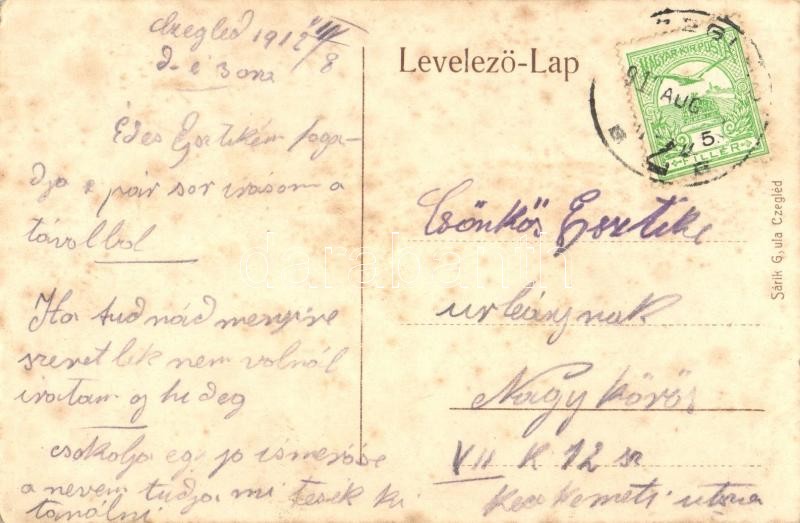 Czegléd 1912 VIII/8
d. e 3 ora
Édes Esztikém foga-
dja e pár sor irásom a
távolbol
Ha tudnád menyire
szeretlek nem volnál
irántam oj hideg
csokolja egy jo ismerőse
a nevem tudja mi tessék ki
tanálni
Levelező-Lap
MAGYAR KIR. POSTA
AUG
5
FILLÉR
Csönkös Esztike
urleánynak
Nagy körös
VII K 12 sz
Kecskeméti utcza
Sárik Gyula Czegléd